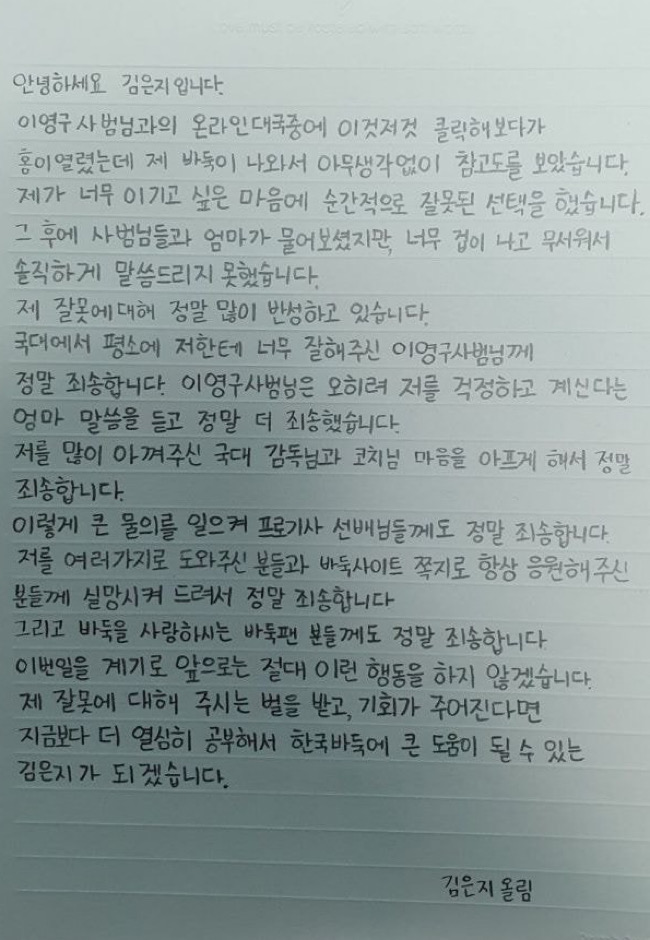 안녕하세요 김은지입니다.
이영구 사범님과의 온라인대국중에 이것저것 클릭해보다가
홍이열렸는데 제 바둑이 나와서 아무생각없이 참고도를 보았습니다.
제가 너무 이기고 싶은 마음에 순간적으로 잘못된 선택을 했습니다.
그 후에 사범님들과 엄마가 물어보셨지만, 너무 겁이 나고 무서워서
솔직하게 말씀드리지 못했습니다.
제 잘못에대해 정말 많이 반성하고 있습니다.
국대에서 평소에 저한테 너무 잘해주신 이영구사범님께
정말 죄송합니다. 이영구사범님은 오히려 저를 걱정하고 계신다는
엄마 말씀을 듣고 정말 더 죄송했습니다.
저를 많이 아껴주신 국대 감독님과 코치님 마음을 아프게 해서 정말
죄송합니다.
이렇게 큰 물의를 일으켜 프로기사 선배님들께도 정말 죄송합니다.
저를 여러가지로 도와주신 분들과 바둑사이트 쪽지로 항상 응원해주신
분들께 실망시켜 드려서 정말 죄송합니다
그리고 바둑을 사랑하시는 바둑팬 분들께도 정말 죄송합니다.
이번일을 계기로 앞으로는 절대 이런 행동을 하지 않겠습니다.
제 잘못에 대해 주시는 벌을 받고, 기회가 주어진다면
지금보다 더 열심히 공부해서 한국바둑에 큰 도움이 될 수 있는
김은지가 되겠습니다.
김은지 올림